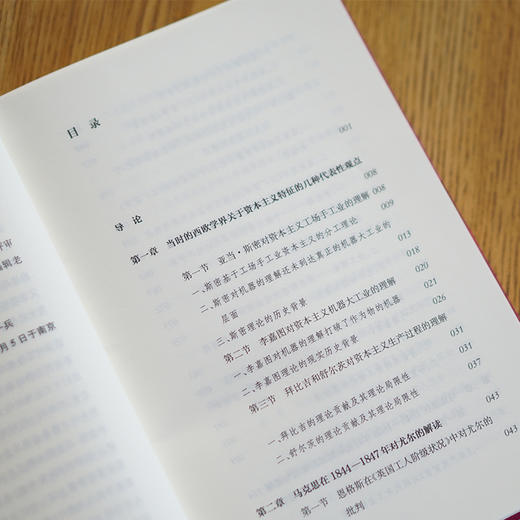 评审
编辑老
一兵
月5日于南京
目 录
导 论
001
第一章 当时的西欧学界关于资本主义特征的几种代表性观点
008
第一节 亚当·斯密对资本主义工场手工业的理解
008
一、斯密基于工场手工业资本主义的分工理论
009
二、斯密对机器的理解还未到达真正的机器大工业的
层面
013
三、斯密理论的历史背景
第二节 李嘉图对资本主义机器大工业的理解
020
一、李嘉图对机器的理解打破了作为物的机器
021
二、李嘉图理论的现实历史背景
026
第三节 拜比吉和舒尔茨对资本主义生产过程的理解
031
一、拜比吉的理论贡献及其理论局限性
031
二、舒尔茨的理论贡献及其理论局限性
037
第二章 马克思在1844—1847年对尤尔的解读
043
第一节 恩格斯在《英国工人阶级状况》中对尤尔的
批判
043